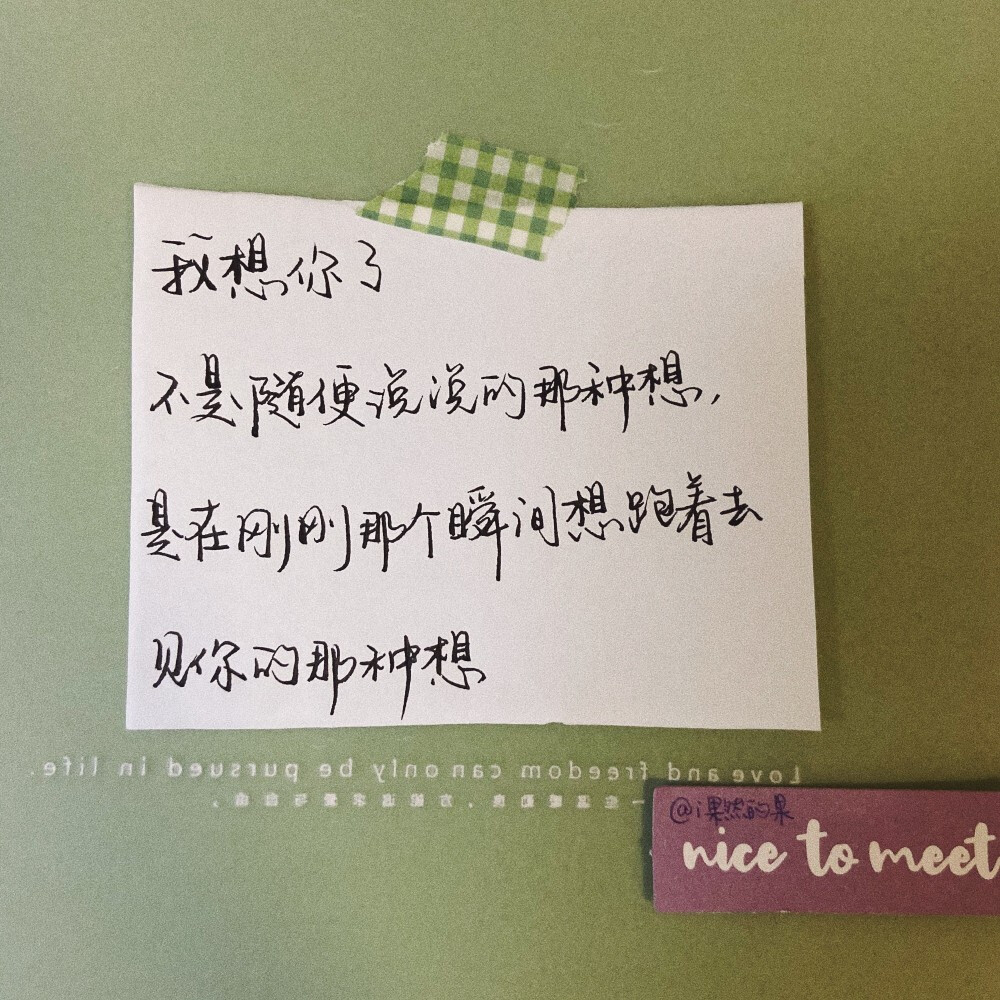 我想你了
不是随便说说的那种想，
是在刚刚那个瞬间想跑着去
见你的那种想
Love and freedom can only be pursued in life.
@i果然的果
nice to meet